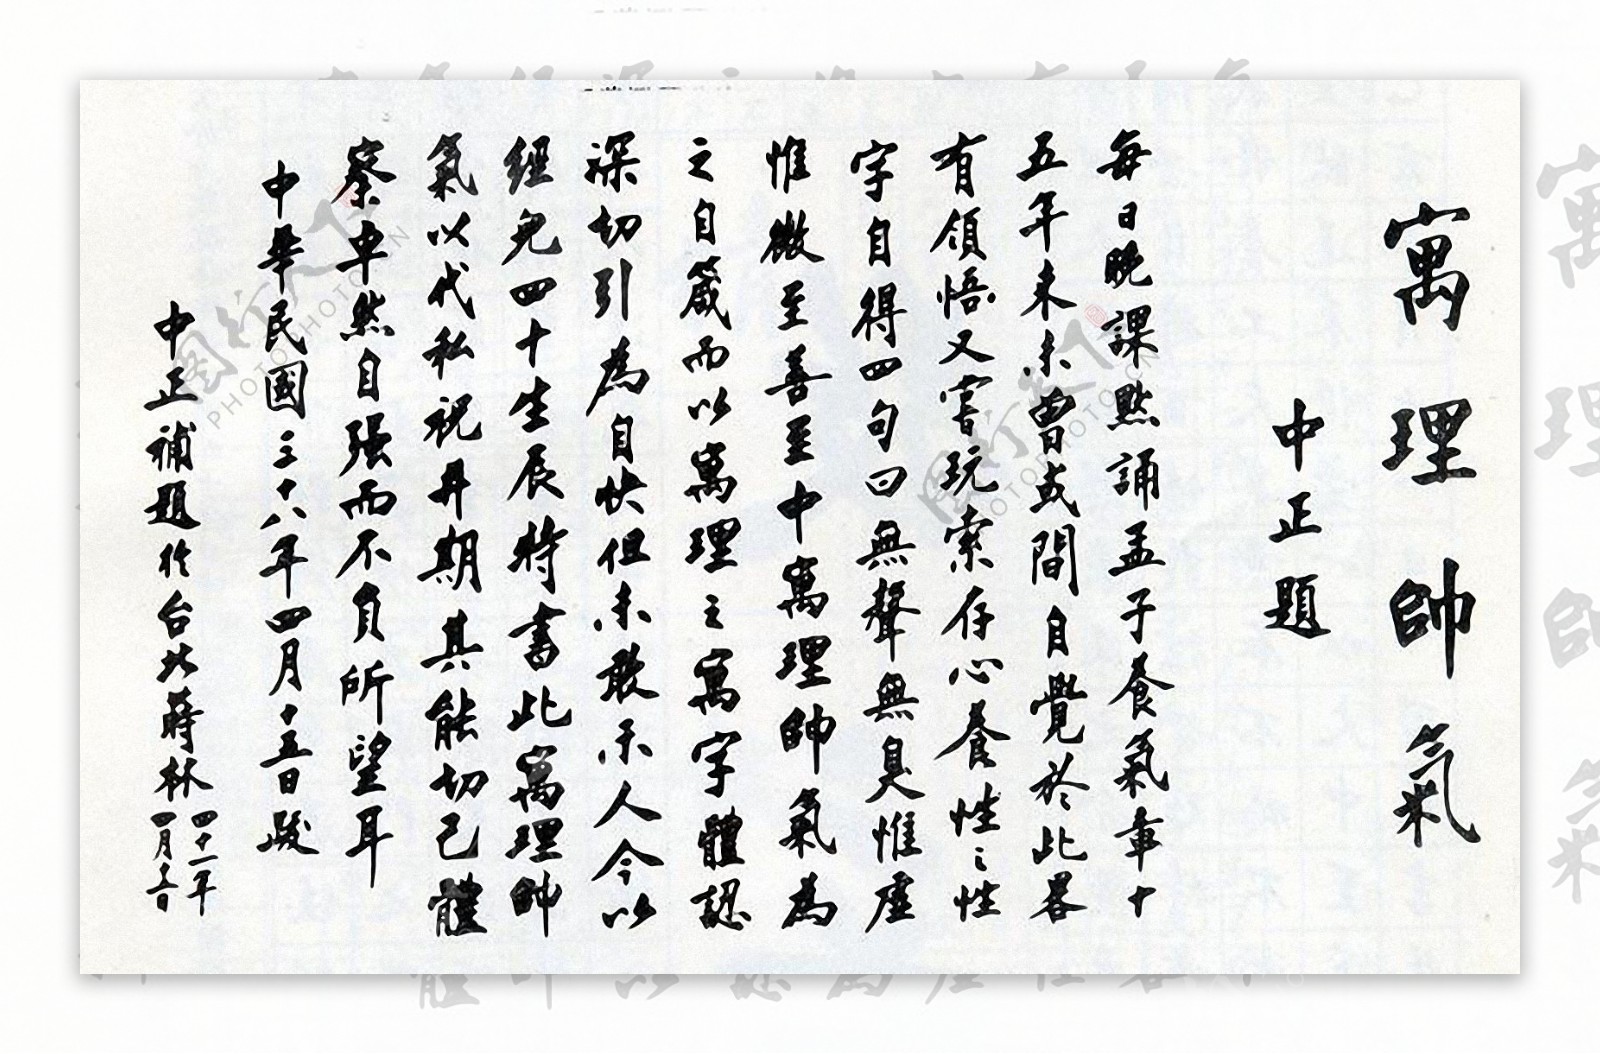 寓理帥氣
中正題
每日晚課默誦孟子養氣章十
五年來未曾或間自覺於此畧
有領悟又嘗玩索存心養性之性
字自得四句曰無聲無臭惟虛
惟微至善至中寓理帥氣為
之自箴而以寓理之寓字體認
深切引為自快但未敢示人今以
經兒四十生辰特書此寓理帥
氣以代私祝并期其能切己體
察卓然自強而不負所望耳
中華民國三十八年四月十五日
中正補題於台北蔣林
四十一年
四月